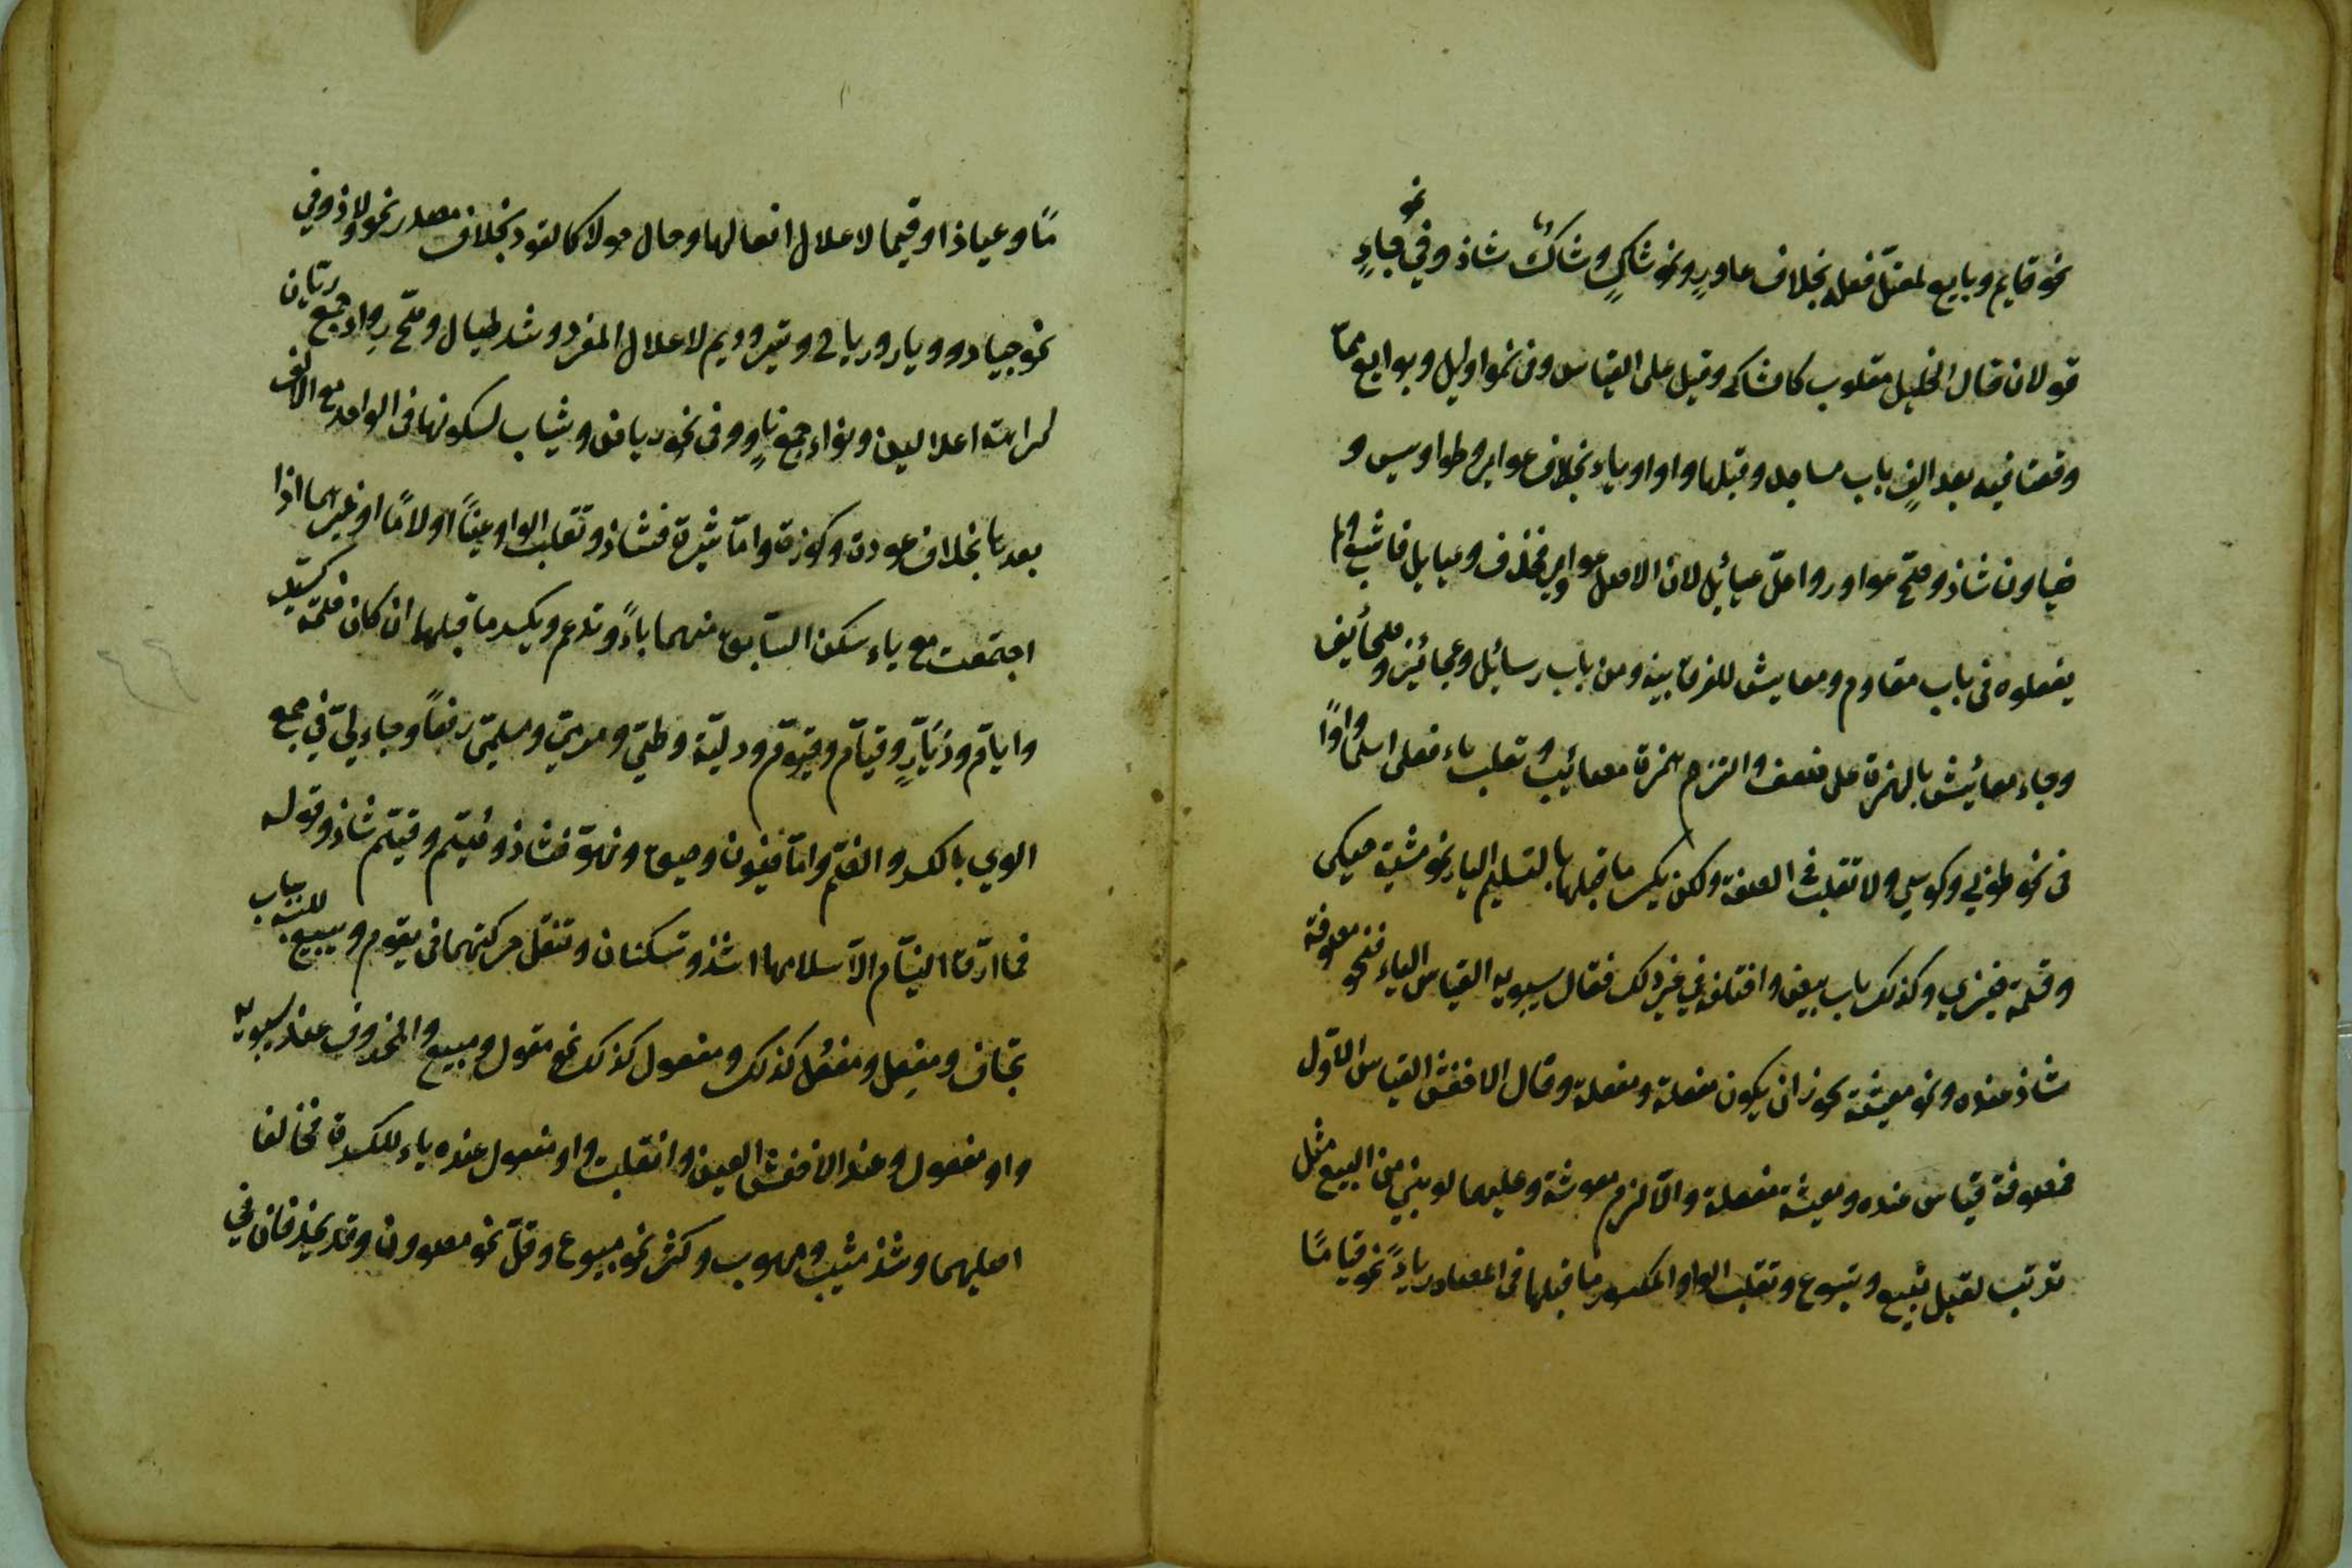 نحو قايم وبايع لمعتل فعله بخلاف عاور ونحو شاكٍ وشاك شاذ وفي نحو جاءٍ
قولان قال الخليل مقلوب كالشاكي وقيل على القياس وفي نحو اوايل وبوايع مما
وقعتا فيه بعد الف باب مساجد وقبلها واو او ياء بخلاف عواير وطواويس و
ضياون شاذ وصح عواور واعلّ عيائيل لان الاصل عواوير فحذف وعيايل فاشبع ولم
يفعلوه في باب مقاوم ومعايش للفرق بينه وبين باب رسائل وعجائز وصحائف
وجاء معائيش بالهمزة على ضعف والتزم همزة مصائب وتقلب ياء فعلى اسما واوًا
في نحو طوبى وكوسى ولا تقلب في الصفة ولكن يكسر ما قبلها لتسلم الياء نحو مشية حيكى
وقسمة ضيزى وكذلك باب بيض واختلف في غير ذلك فقال سيبويه القياس الياء فنحو مضوفة
شاذ عنده ونحو معيشة يجوز ان يكون مفعلة ومفعلة وقال الاخفش القياس الاول
فمضوفة قياس عنده ومعيشة مفعلة والا لزم معوشة وعليهما لو بني من البيع مثل
ترتب لقيل تبيع وتبوع وتقلب الواو المكسور ما قبلها في المصادر ياءً نحو قيامًا
مًا وعياذا وقيما لاعلال افعالها وحال حولا كالقود بخلاف مصدر نحو لاوذ وفي
نحو جياد وديار ورياح وتير وديم لاعلال المفرد وشذ طيال وصح رواء جمع ريان
كراهة اعلالين ونواء جمع ناوٍ وفي نحو رياض وثياب لسكونها في الواحد مع الالف
بعدها بخلاف عودة وكوزة واما ثيرة فشاذ وتقلب الواو عينًا او لامًا او غيرهما اذا
اجتمعت مع ياء وسكن السابق منهما ياءً وتدغم ويكسر ما قبلها ان كان ضمة كسيد
وايام وديّار وقيام وقيوم ودلية وطي ومرمي ومسلمي رفعًا وجاء لي في جمع
الوي بالكسر والضم واما ضيون وحيوة ونهو فشاذ وصيم وقيم شاذ وقوله
فما ارق النيام الا سلامها اشذ وتسكنان وتنقل حركتهما في يقوم ويبيع للبسه بباب
يخاف ومفعل ومفعل كذلك ومفعول كذلك نحو مقول ومبيع والمحذوف عند سيبويه
واو مفعول وعند الاخفش العين وانقلبت واو مفعول عنده ياء للكسرة فخالفا
اصليهما وشذ مشيب ومهوب وكثر نحو مبيوع وقل نحو مصوون وقد يحذفان في